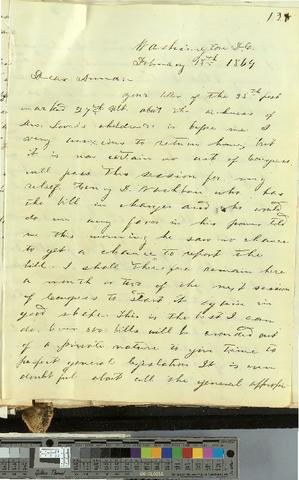 Washington D.C.
February 1869
Dear Annan:
your letter of the 25th post
marked 27th ult. about the sickness of
children is before me I
very anxious to return home, but
it is now certain no act of Congress
will pass this session for my
relief. Henry D. Washburn who has
the bill in charge and who would
do me any favor in his power told
me this morning he saw no chance
to get a chance to report the
bill. I shall therefore remain here
a month or two of the next session
of Congress to start it again in
good shape. This is the best I can
do. Over 300 bills will be crowded out
of a private nature to give time to
perfect general legislation. It is even
doubtful about all the general appropr